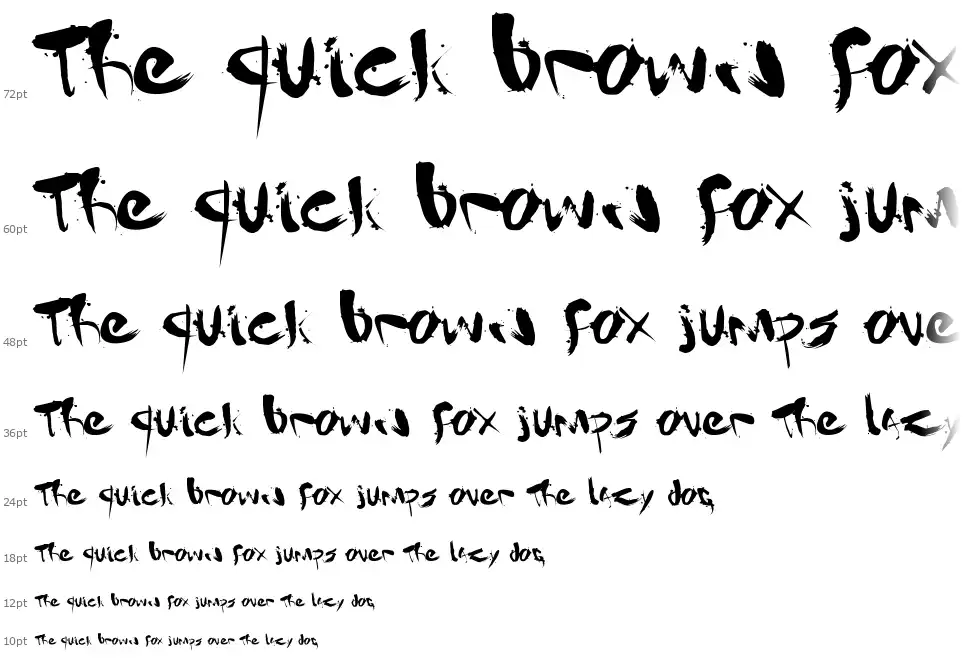 72pt The quick brown fox
60pt The quick brown fox jum
48pt The quick brown fox jumps ove
36pt The quick brown fox jumps over the lazy
24pt The quick brown fox jumps over the lazy dog
18pt The quick brown fox jumps over the lazy dog
12pt The quick brown fox jumps over the lazy dog
10pt The quick brown fox jumps over the lazy dog